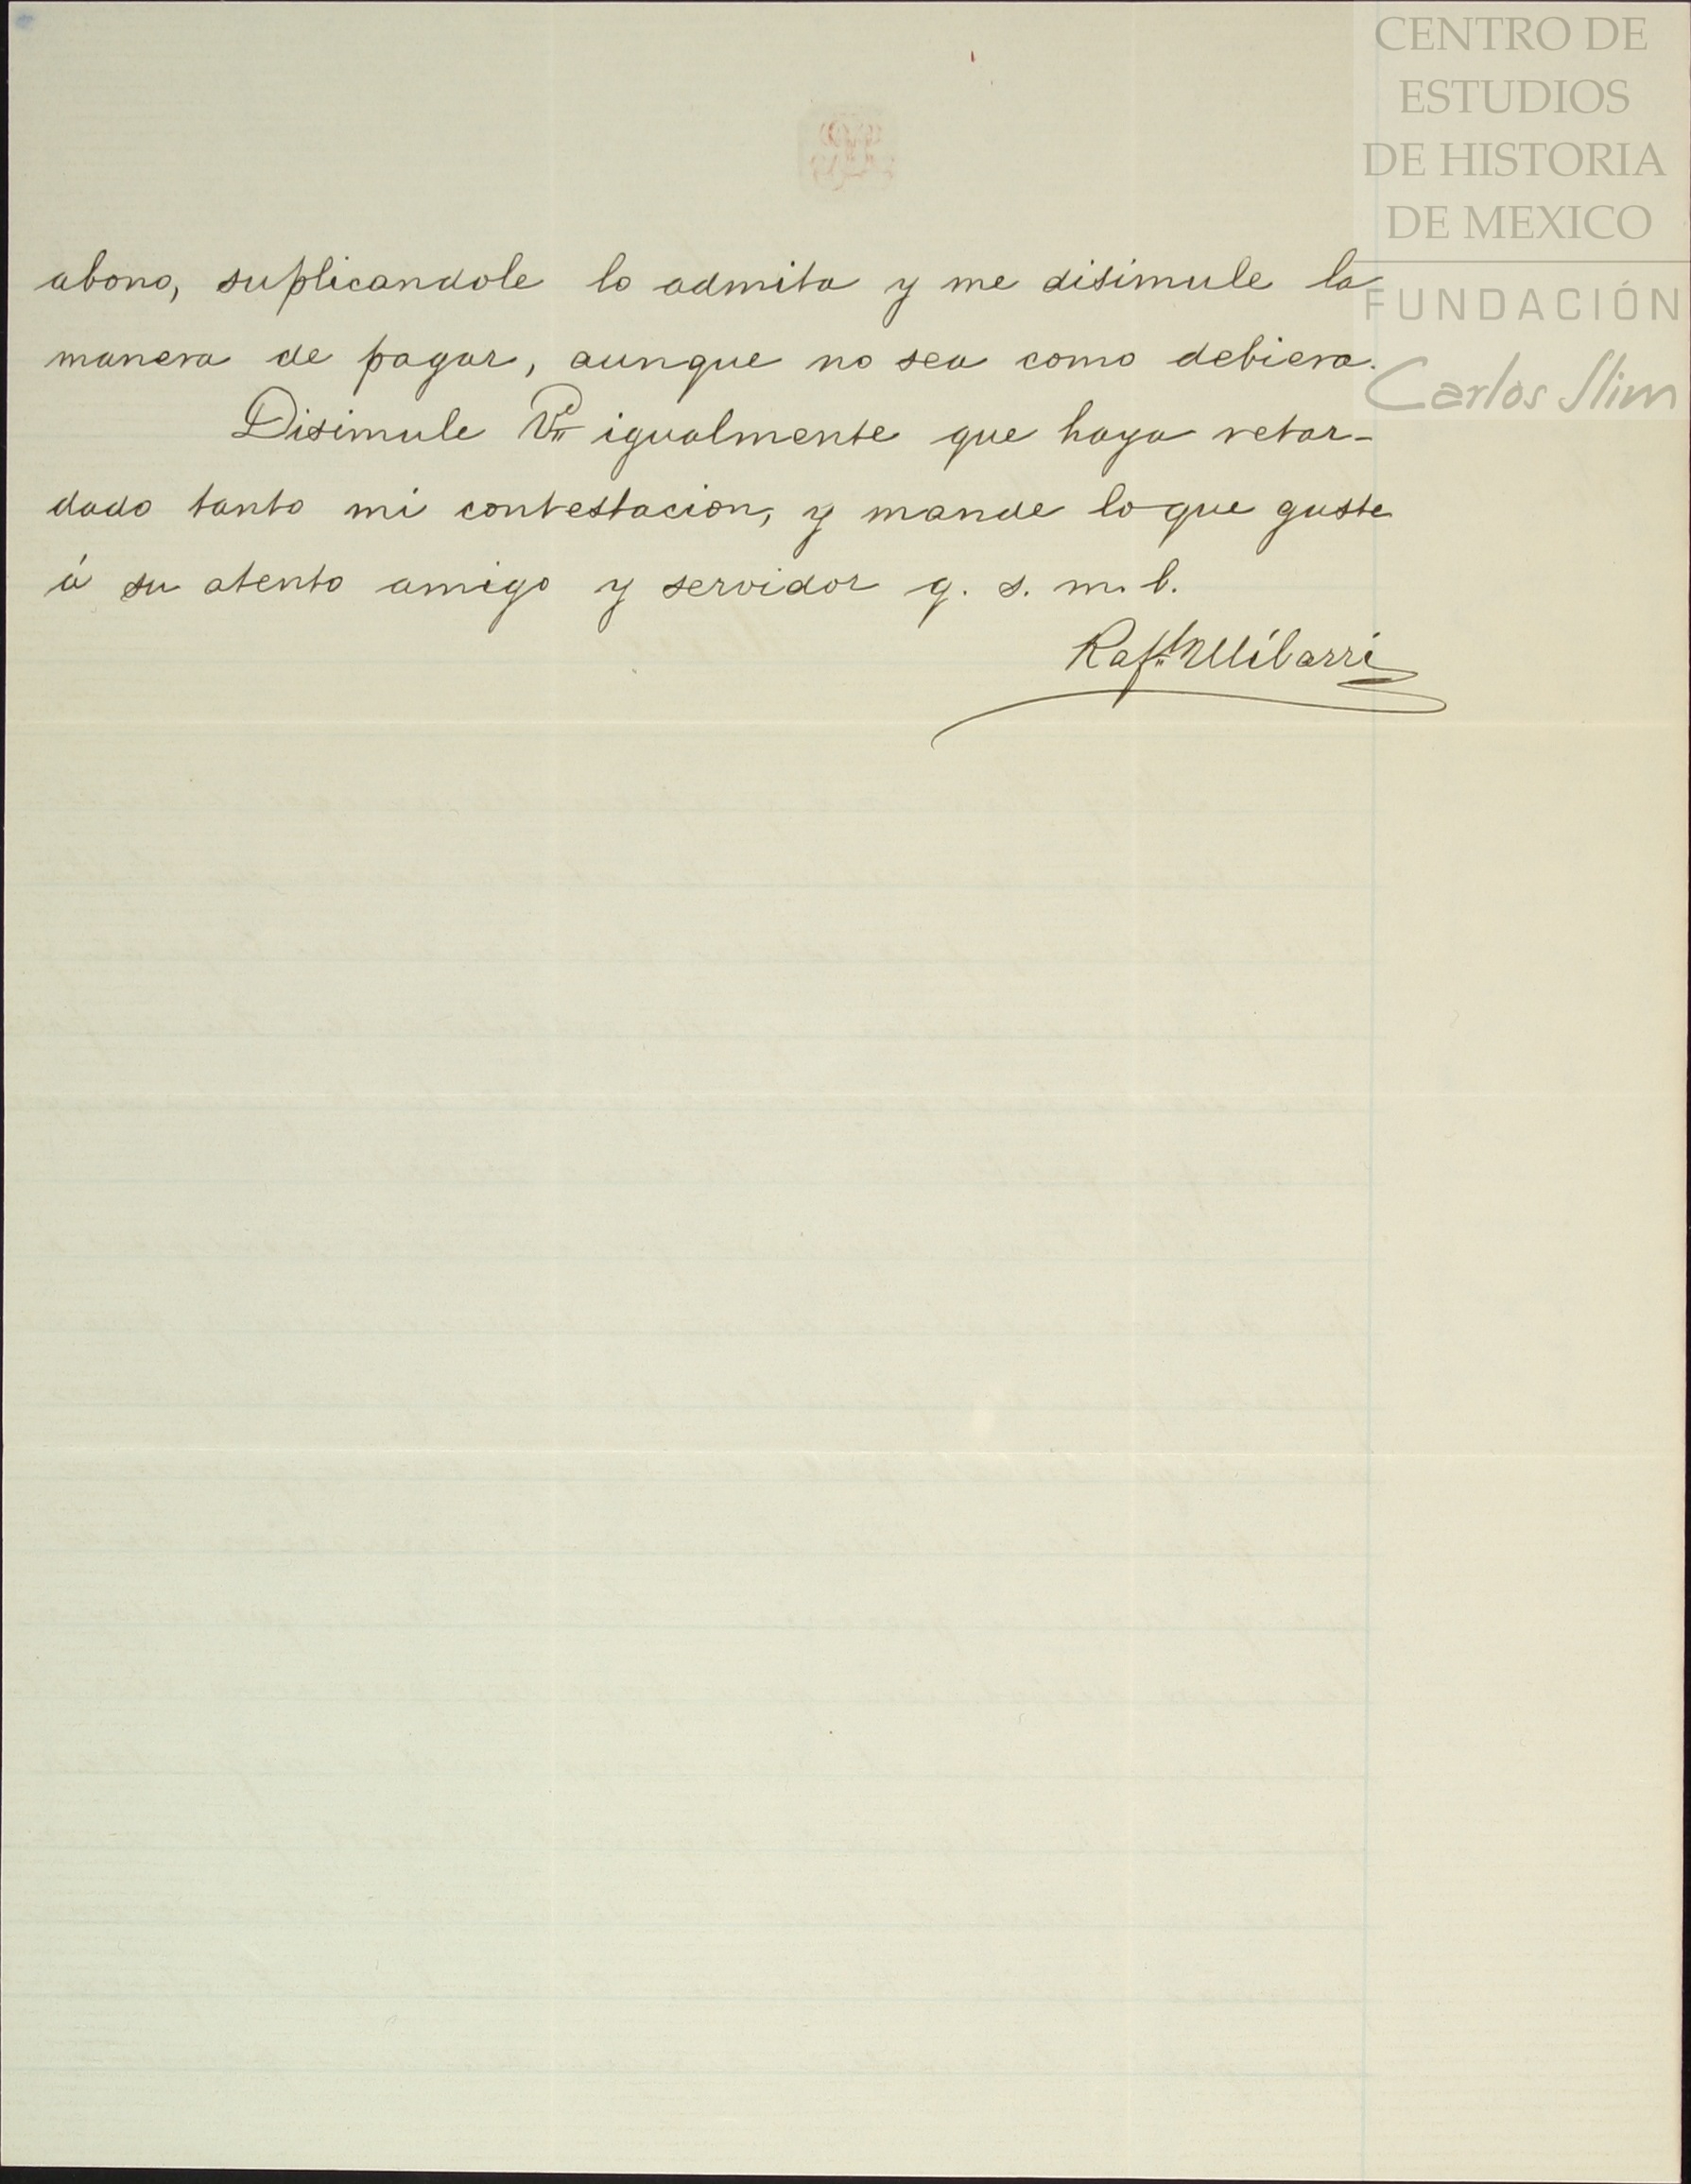 CENTRO DE
ESTUDIOS
DE HISTORIA
DE MEXICO
FUNDACIÓN
Carlos Slim
abono, suplicandole lo admita y me disimule la
manera de pagar, aunque no sea como debiera.
Disimule Vd igualmente que haya retar-
dado tanto mi contestacion, y mande lo que guste
á su atento amigo y servidor q. s. m. b.
Rafl Ulibarri